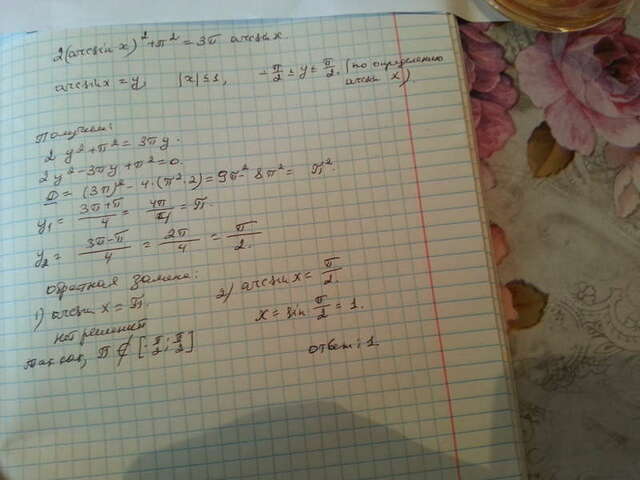 2(arcsin x)² + π² = 3π arcsin x
arcsin x = y, |x| ≤ 1, -π/2 ≤ y ≤ π/2. (по определению
arcsin x).
Получим:
2y² + π² = 3πy.
2y² - 3πy + π² = 0.
D = (3π)² - 4·(π²·2) = 9π² - 8π² = π².
y₁ = (3π+π)/4 = 4π/4 = π.
y₂ = (3π-π)/4 = 2π/4 = π/2.
Обратная замена:
1) arcsin x = π,
нет решений
так как, π ∉ [-π/2; π/2]
2) arcsin x = π/2.
x = sin π/2 = 1.
ответ: 1